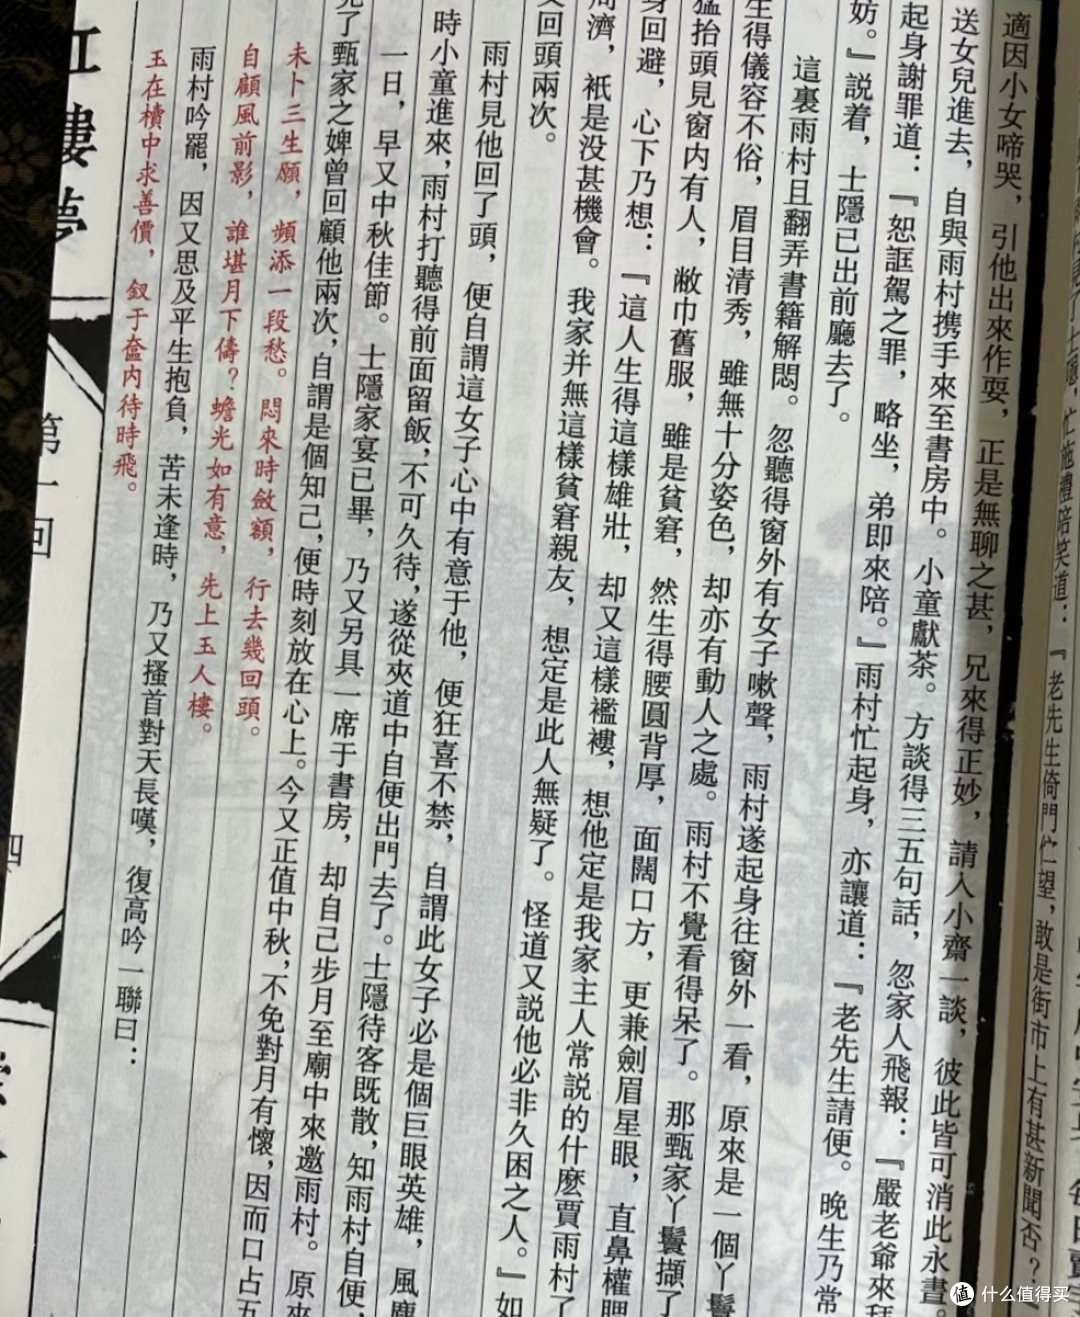 見了士隱,忙施禮陪笑道:『老先生倚門伫望,敢是街市上有甚新聞否?』
適因小女啼哭,引他出來作耍,正是無聊之甚,兄來得正妙,請入小齋一談,彼此皆可消此永晝。
送女兒進去,自與雨村携手來至書房中。小童獻茶。方談得三五句話,忽家人飛報:『嚴老爺來拜
起身謝罪道:『恕誆駕之罪,略坐,弟即來陪。』雨村忙起身,亦讓道:『老先生請便。晚生乃常
妨。』説着,士隱已出前廳去了。
這裏雨村且翻弄書籍解悶。忽聽得窗外有女子嗽聲,雨村遂起身往窗外一看,原來是一個丫鬟
生得儀容不俗,眉目清秀,雖無十分姿色,却亦有動人之處。雨村不覺看得呆了。那甄家丫鬟擷了
猛抬頭見窗内有人,敝巾舊服,雖是貧窘,然生得腰圓背厚,面闊口方,更兼劍眉星眼,直鼻權腮
身回避,心下乃想:『這人生得這樣雄壯,却又這樣襤褸,想他定是我家主人常説的什麽賈雨村了
周濟,衹是没甚機會。我家并無這樣貧窘親友,想定是此人無疑了。怪道又説他必非久困之人。』如
又回頭兩次。
雨村見他回了頭,便自謂這女子心中有意于他,便狂喜不禁,自謂此女子必是個巨眼英雄,風塵
時小童進來,雨村打聽得前面留飯,不可久待,遂從夾道中自便出門去了。士隱待客既散,知雨村自便,
一日,早又中秋佳節。士隱家宴已畢,乃又另具一席于書房,却自己步月至廟中來邀雨村。原來
見了甄家之婢曾回顧他兩次,自謂是個知己,便時刻放在心上。今又正值中秋,不免對月有懷,因而口占五
未卜三生願,頻添一段愁。悶來時斂額,行去幾回頭。
自顧風前影,誰堪月下儔?蟾光如有意,先上玉人樓。
雨村吟罷,因又思及平生抱負,苦未逢時,乃又搔首對天長嘆,復高吟一聯曰:
玉在櫝中求善價,釵于奩内待時飛。
紅樓夢
第一回
四
值 什么值得买